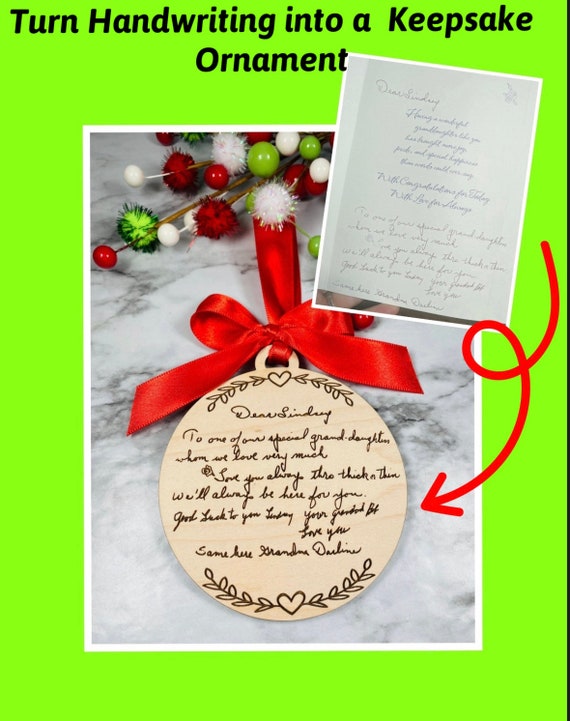 Turn Handwriting into a Keepsake
Ornament
Dear Lindsey
Having a wonderful
granddaughter like you
has brought more joy,
pride, and special happiness
than words could ever say.
With Congratulations for Today
With Love for Always
To one of our special grand-daughters
whom we love very much
Love you always thro thick n thin
we'll always be here for you.
Good Luck to you Lindsey your grandad Bt
Love you
Same here Grandma Darline
Dear Lindsey
To one of our special grand-daughters
whom we love very much
Love you always thro thick n thin
We'll always be here for you.
Good Luck to you Lindsey your grandad Bt
Love you
Same here Grandma Darline